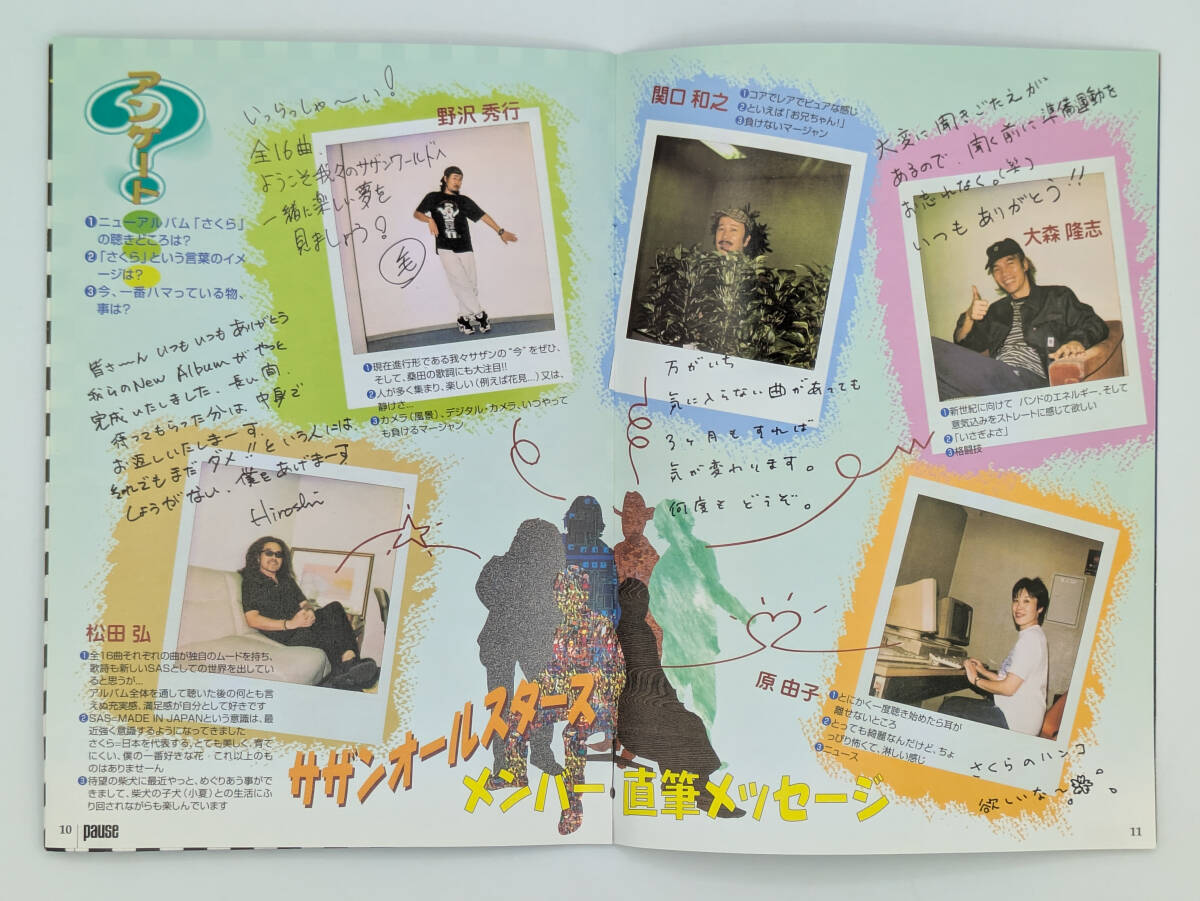 アンケート
?
❶ニューアルバム「さくら」
の聴きどころは?
❷「さくら」という言葉のイメ
ージは?
❸今、一番ハマっている物、
事は?
野沢 秀行
いらっしゃ〜い!
全16曲
ようこそ我々のサザンワールドへ
一緒に楽しい夢を
見ましょう!
毛
❶現在進行形である我々サザンの“今”をぜひ、
そして、桑田の歌詞にも大注目!!
❷人が多く集まり、楽しい(例えば花見…)又は、
静けさ…
❸カメラ(風景)、デジタル・カメラ、いつやって
も負けるマージャン
皆さ〜ん いつもいつもありがとう
我らのNew Albumがやっと
完成いたしました。長い間、
待ってもらった分は、中身で
お返しいたしまーす。
それでもまだダメ!!という人には、
しょうがない、僕をあげまーす
Hiroshi
松田 弘
❶全16曲それぞれの曲が独自のムードを持ち、
歌詩も新しいSASとしての世界を出してい
ると思うが…
アルバム全体を通して聴いた後の何とも言
えぬ充実感、満足感が自分として好きです
❷SAS=MADE IN JAPANという意識は、最
近強く意識するようになってきました
さくら=日本を代表する、とても美しく、育て
にくい、僕の一番好きな花・これ以上のも
のはありませーん
❸待望の柴犬に最近やっと、めぐりあう事がで
きまして、柴犬の子犬(小夏)との生活にふ
り回されながらも楽しんでいます
関口 和之
❶コアでレアでピュアな感じ
❷といえば「お兄ちゃん!」
❸負けないマージャン
万がいち
気に入らない曲があっても
3ヶ月もすれば
気が変わります。
何度もどうぞ。
大変に聞きごたえが、
あるので、聞く前に準備運動を
お忘れなく。(笑)
いつもありがとう!!
大森 隆志
❶新世紀に向けて バンドのエネルギー、そして
意気込みをストレートに感じて欲しい
❷「いさぎよさ」
❸格闘技
原 由子
❶とにかく一度聴き始めたら耳が
離せないところ
❷とっても綺麗なんだけど、ちょ
っぴり怖くて、淋しい感じ
❸ニュース
さくらのハンコ
欲しいな〜。
サザンオールスターズ
メンバー直筆メッセージ
10 pause
11